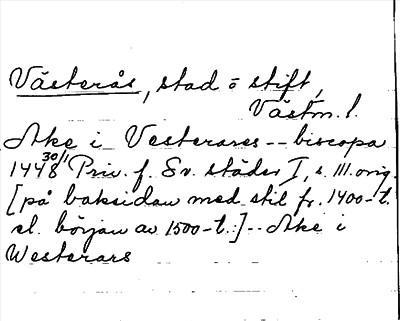 Västerås, stad o stift,
Västm. l.
Åke i Vesterares -- biscopa
1448 30/1 Priv. f. Sv. städer I, s. 111. orig.
[på baksidan med stil fr. 1400-t.
el. början av 1500-t.] -- Åke i
Westerars